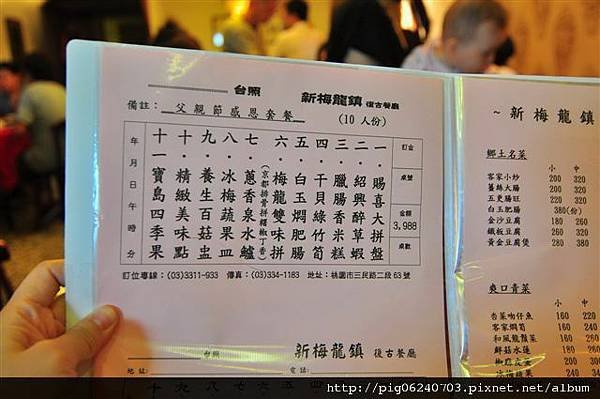 台照 新梅龍鎮 復古餐廳
備註: 父親節感恩套餐 (10 人份)
訂金
桌號
金額
3,988
桌數
一.賜喜大拼盤
二.紹興醉草蝦
三.臘腸香米糕
四.干貝綠竹筍
五.白玉燜肥腸
六.梅龍雙味拼
(京都排骨拼糯椒丁香)
七.蔥香泉水鱸
八.冰梅蔬果蝦
九.養生百菇盅
十.精緻美味點
十一寶島四季果
年 月 日 午 時 分
訂位專線:(03)3311-933 傳真:(03)334-1183 地址:桃園市三民路二段63號
台照 新梅龍鎮 復古餐廳
地址: 電話:
十 十 九 八 七 六 五 四
~ 新梅龍鎮
鄉土名菜
小 中
客家小炒 200 320
薑絲大腸 200 320
五更腸旺 220 320
白玉肥腸 380(份)
金沙豆腐 200 280
鐵板豆腐 200 280
黃金豆腐煲 280
爽口青菜
小 中
杏菜吻仔魚 160 220
客家燜筍 160 220
和風龍鬚菜 160
鮮菇水蓮 180
http://pig06240703.pixnet.net/album